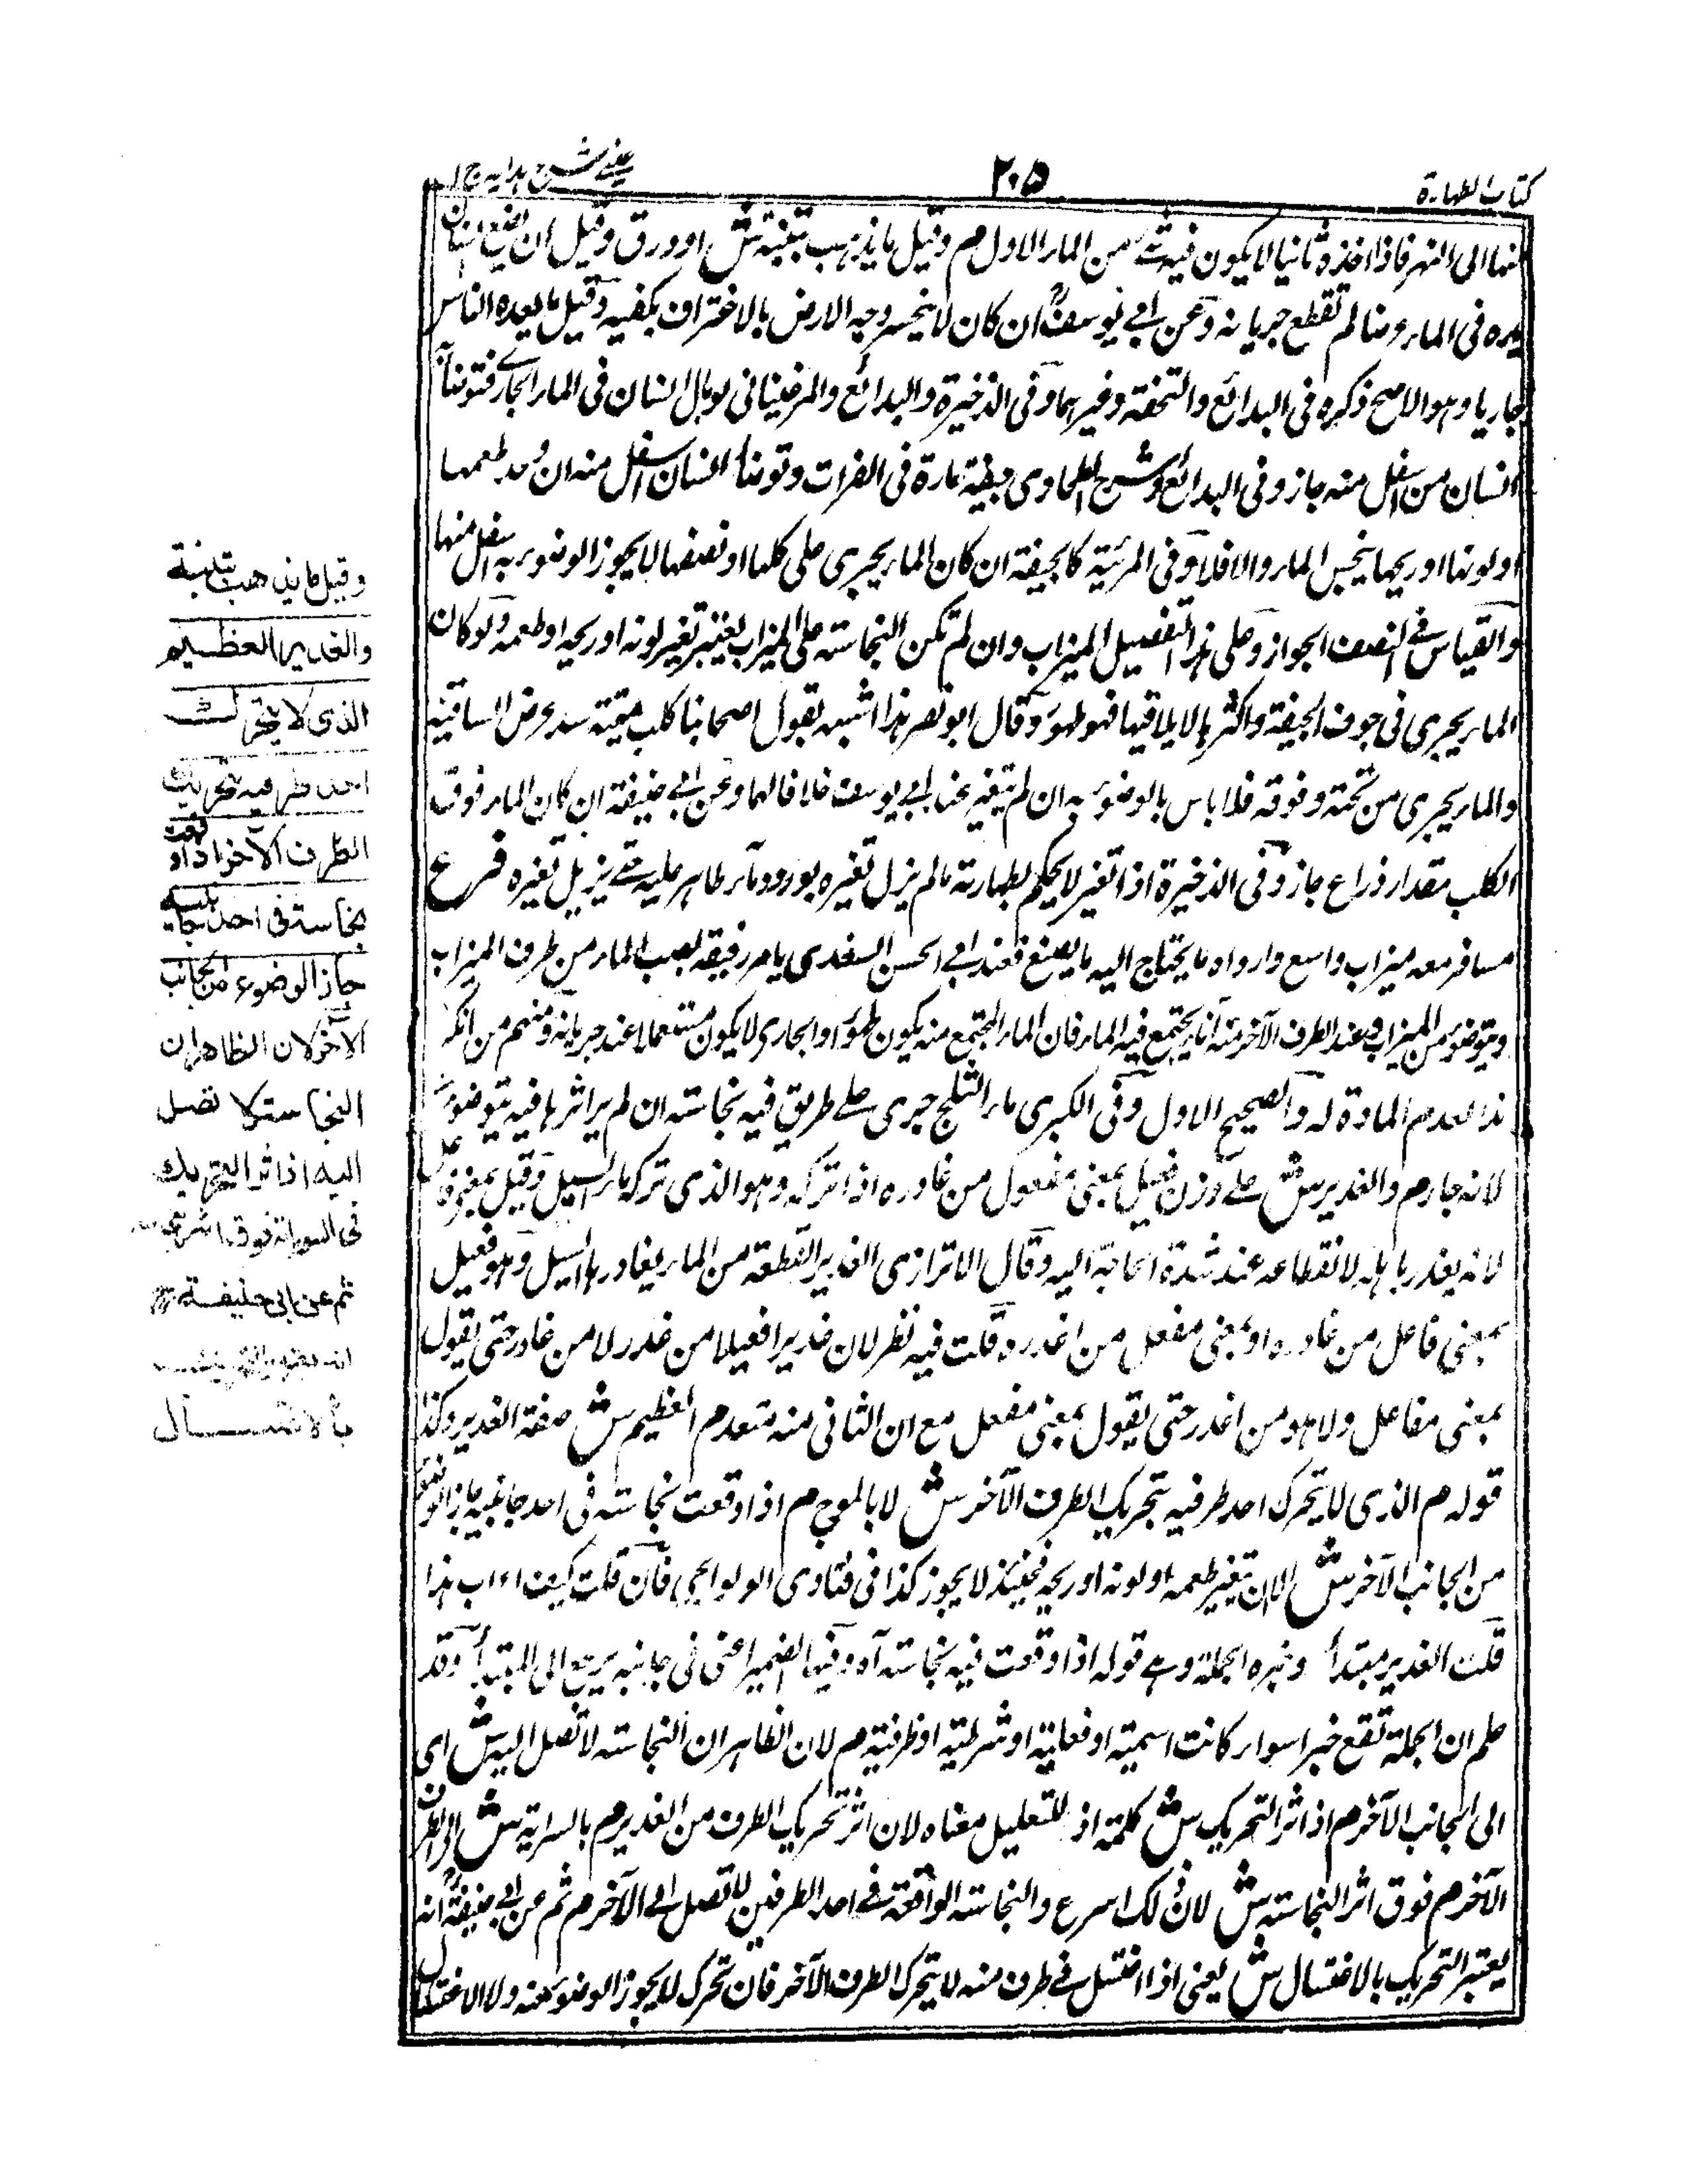 كتاب الطهارة
٢٠٥
عينے شرح ہدایہ ج ١
منها الى النهر فاذا اخذه ثانيا لا يكون فيه شئ من الماء الاول م وقيل ما يذهب بتبنة ش او ورق وقيل ان وضع انسان
يده فى الماء عرضا لم تقطع جريانه وعن ابي يوسف ان كان لا ينحسر وجه الارض بالاغتراف بكفيه وقيل ما يعده الناس
جاريا وهو الاصح ذكره فى البدائع والتحفة وغيرهما وفى الذخيرة والبدائع والمرغينانى لو بال انسان فى الماء الجارے فتوضأ
انسان من اسفل منه جاز وفى البدائع وشرح الطحاوى جيفة مارة فى الفرات وتوضأ انسان اسفل منه ان وجد طعمها
او لونها او ريحها ينجس الماء والا فلا وفى المرئية كالجيفة ان كان الماء يجرى على كلها او نصفها لا يجوز الوضوء به اسفل منها
والقياس فے النصف الجواز وعلى هذا التفصيل الميزاب وان لم تكن النجاسة على الميزاب يعتبر تغير لونه او ريحه او طعمه ولو كان
الماء يجرى فى جوف الجيفة واكثرها لا يلاقيها فهو طهور وقال ابو نصر هذا اشبه بقول اصحابنا كلب ميتة سد عرض الساقية
والماء يجرى من تحته وفوقه فلا باس بالوضوء به ان لم يتغير عند ابي يوسف خلافا لهما وعن ابي حنيفة ان كان الماء فوق
الكلب مقدار ذراع جاز وفى الذخيرة اذا تغير لا يحكم بطهارته ما لم يزل تغيره بورود ماء طاهر عليه حتے يزيل تغيره فرع
مسافر معه ميزاب واسع واداوة ما يحتاج اليه ما يصنع فعند ابي الحسن السغدى يامر رفيقه يصب الماء من طرف الميزاب
ويتوضؤ من الميزاب وعند الطرف الآخر منه اناء يجتمع فيه الماء فان الماء المجتمع منه يكون طهورا والجارى لا يكون مستعملا عند جريانه ومنهم من انكر
هذا لعدم المادة له والصحيح الاول وفى الكبرى ماء الثلج جرى على طريق فيه نجاسة ان لم ير اثرها فيه يتوضؤ منه
لانه جار م والغدير ش على وزن فعيل بمعنى مفعول من غادره اذا تركه وهو الذى تركه ماء السيل وقيل بمعنى فاعل
لانه يغدر باهله لانقطاعه عند شدة الحاجة اليه وقال الاترازى الغدير القطعة من الماء يغادرها السيل وهو فعيل
بمعنى فاعل من غادره او بمعنى مفعل من اغدره قلت فيه نظر لان غديرا فعيلا من غدر لا من غادر حتى يقول
بمعنى مفاعل ولا هو من اغدر حتى يقول بمعنى مفعل مع ان الثانى منه متعد م العظيم ش صفة الغدير وكذا
قوله م الذى لا يتحرك احد طرفيه بتحريك الطرف الآخر ش لا بالموج م اذا وقعت نجاسة فى احد جانبيه جاز الوضوء
من الجانب الآخر ش الا ان يتغير طعمه او لونه او ريحه فحينئذ لا يجوز كذا فى فتاوى الولوالجى فان قلت كيف اعراب هذا
قلت الغدير مبتدأ وخبره الجملة وهے قوله اذا وقعت فيه نجاسة آه وفيها الضمير اعنى فى جانبيه يرجع الى المبتدأ وقد
علم ان الجملة تقع خبرا سواء كانت اسمية او فعلية او شرطية او ظرفية م لان الظاهر ان النجاسة لا تصل اليه ش اى
الى الجانب الآخر م اذ اثر التحريك ش كلمة اذ للتعليل معناه لان اثر تحريك الطرف من الغدير م بالسراية ش الى الطرف
الآخر م فوق اثر النجاسة ش لان ذلك اسرع والنجاسة الواقعة فے احد الطرفين لا تصل الے الآخر م ثم عن ابي حنيفة انه
يعتبر التحريك بالاغتسال ش يعنى اذا اغتسل فے طرف منه لا يتحرك الطرف الآخر فان تحرك لا يجوز الوضوء منه ولا الاغتسال
وقيل ما يذهب بتبنة
والغدير العظيم
الذى لا يتحرك
احد طرفيه بتحريك
الطرف الآخر اذا وقعت
نجاسة فى احد جانبيه
جاز الوضوء من الجانب
الآخر لان الظاهر ان
النجاسة لا تصل
اليه اذ اثر التحريك
فى السراية فوق اثر
ثم عن ابى حنيفة
انه يعتبر التحريك
بالاغتسال